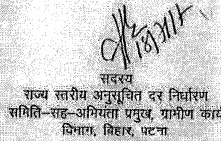 सदस्य
राज्य स्तरीय अनुसूचित दर निर्धारण
समिति-सह-अभियंता प्रमुख, ग्रामीण कार्य
विभाग, बिहार, पटना